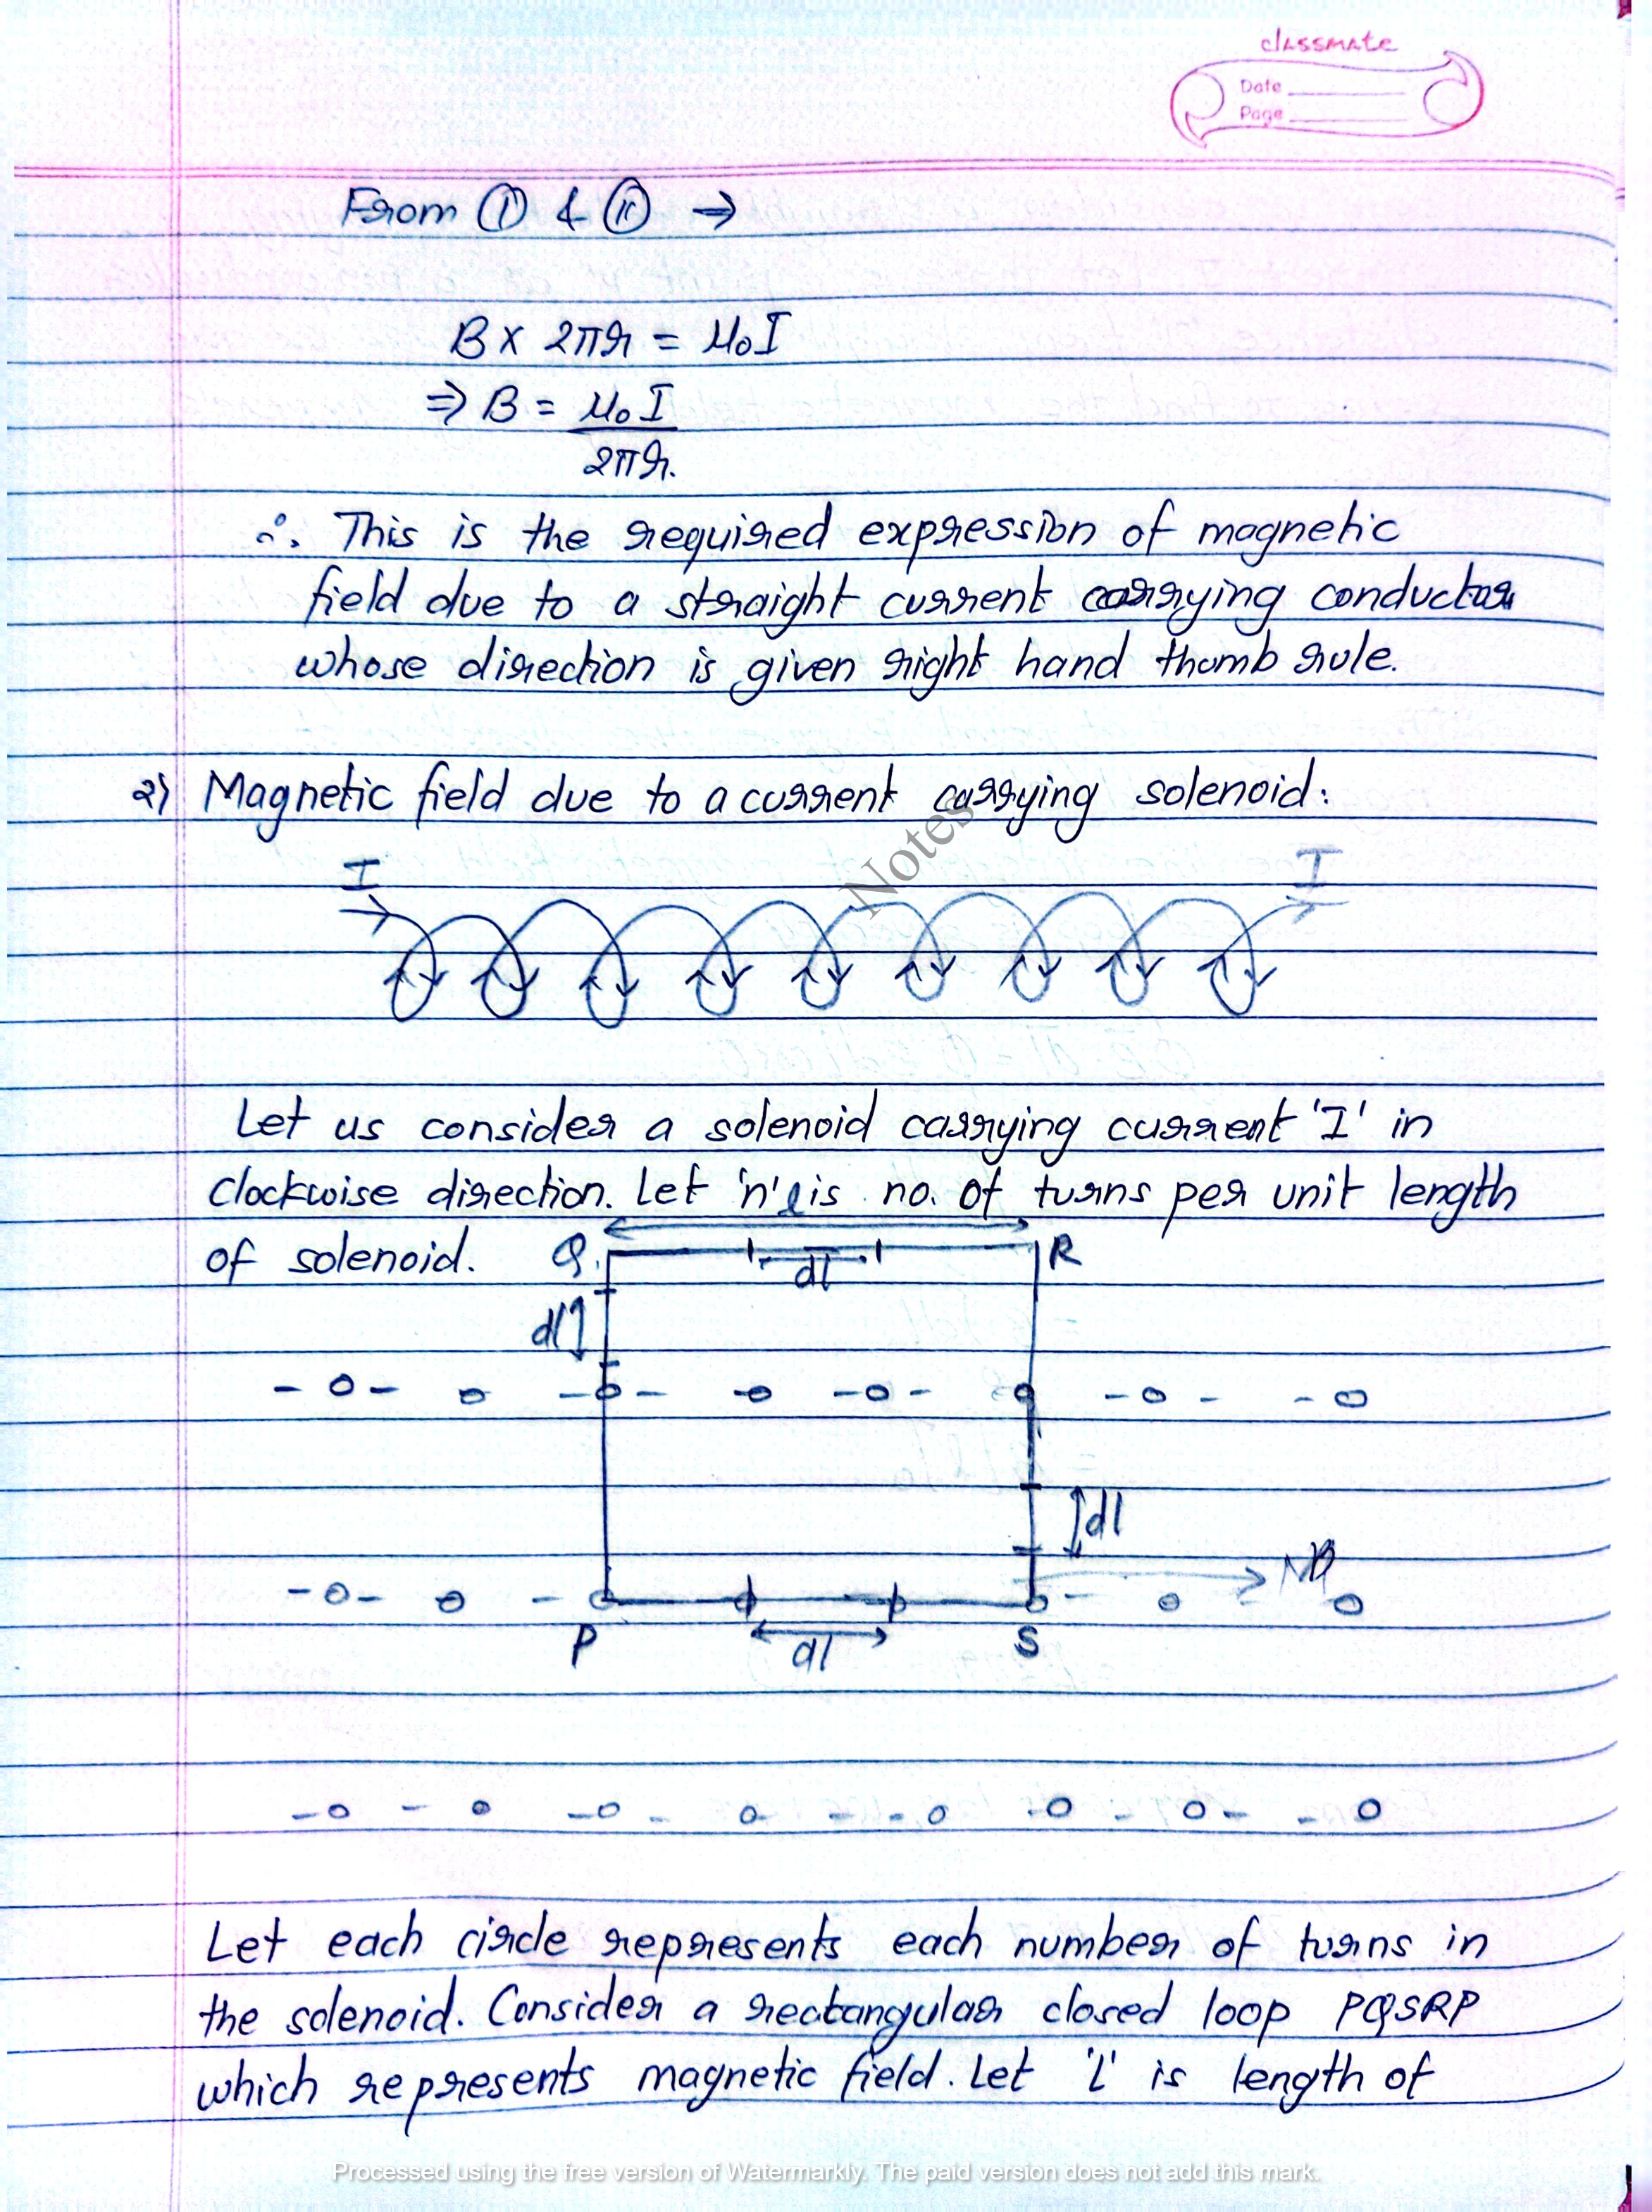 classmate
Date
Page
From (I) & (II) ⇒
B × 2πr = μ₀I
⇒ B = μ₀I
2πr.
∴ This is the required expression of magnetic
field due to a straight current carrying conductor
whose direction is given right hand thumb rule.
2) Magnetic field due to a current carrying solenoid:
Notes
I I
Let us consider a solenoid carrying current 'I' in
clockwise direction. Let 'n' is no. of turns per unit length
l
of solenoid. Q R
dl
dl
dl
P S
dl
Let each circle represents each number of turns in
the solenoid. Consider a rectangular closed loop PQSRP
which represents magnetic field. Let 'l' is length of
Processed using the free version of Watermarkly. The paid version does not add this mark.